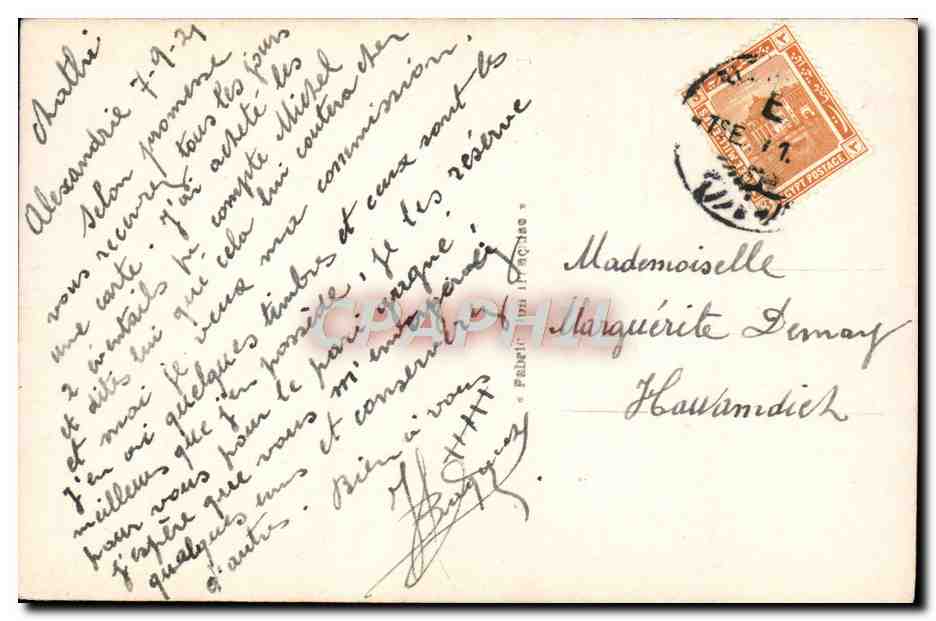 Chatbi
Alexandrie 7-9-21
selon promesse
vous recevrez tous les jours
une carte. J'ai acheté les
2 éventails pr compte Michel
et dites lui que cela lui coutera cher
et moi je veux ma commission.
J'en ai quelques timbres et ceux sont les
meilleurs que j'en possède, je les réserve
pour vous pour le pari gagné.
J'espère que vous m'en
quelques uns et conserverez
d'autres. Bien à vous
XXXXX
"Fabrication française"
EGYPT POSTAGE
Mademoiselle
Marguérite Demay
Hawamdieh
CPAPHIL